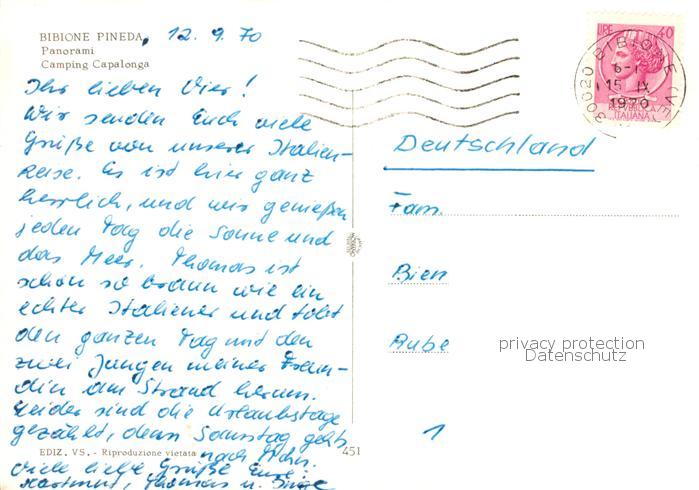 BIBIONE PINEDA, 12.9.70
Panorami
Camping Capalonga
Ihr lieben Vier!
Wir senden Euch viele
Grüße von unserer Italien-
reise. Es ist hier ganz
herrlich, und wir genießen
jeden Tag die Sonne und
das Meer. Thomas ist
schon so braun wie ein
echter Italiener und tobt
den ganzen Tag mit den
zwei Jungen meiner Freun-
din am Strand herum.
Leider sind die Urlaubstage
gezählt, denn Samstag geht's
nach Mchn.
Viele liebe Grüße Eure
Hartmut, Thomas u.
EDIZ. VS. - Riproduzione vietata
451
LIRE 40
30020 BIBIONE (VE)
15 IX
1970
ITALIANA
Deutschland
Fam.
Bien
Rube
privacy protection
Datenschutz
1